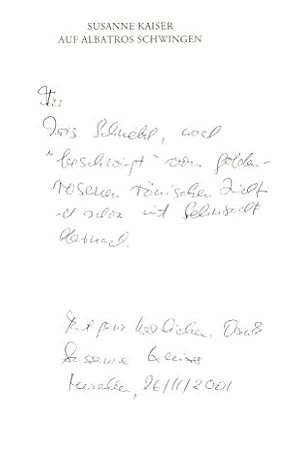 SUSANNE KAISER
AUF ALBATROS SCHWINGEN
Für
Iris Schnebel, noch
"beschwingt" vom golden-
rosenen römischen Licht
und schon mit Sehnsucht
danach.
Mit ganz herzlichem Dank
Susanne Kaiser
26/11/2001